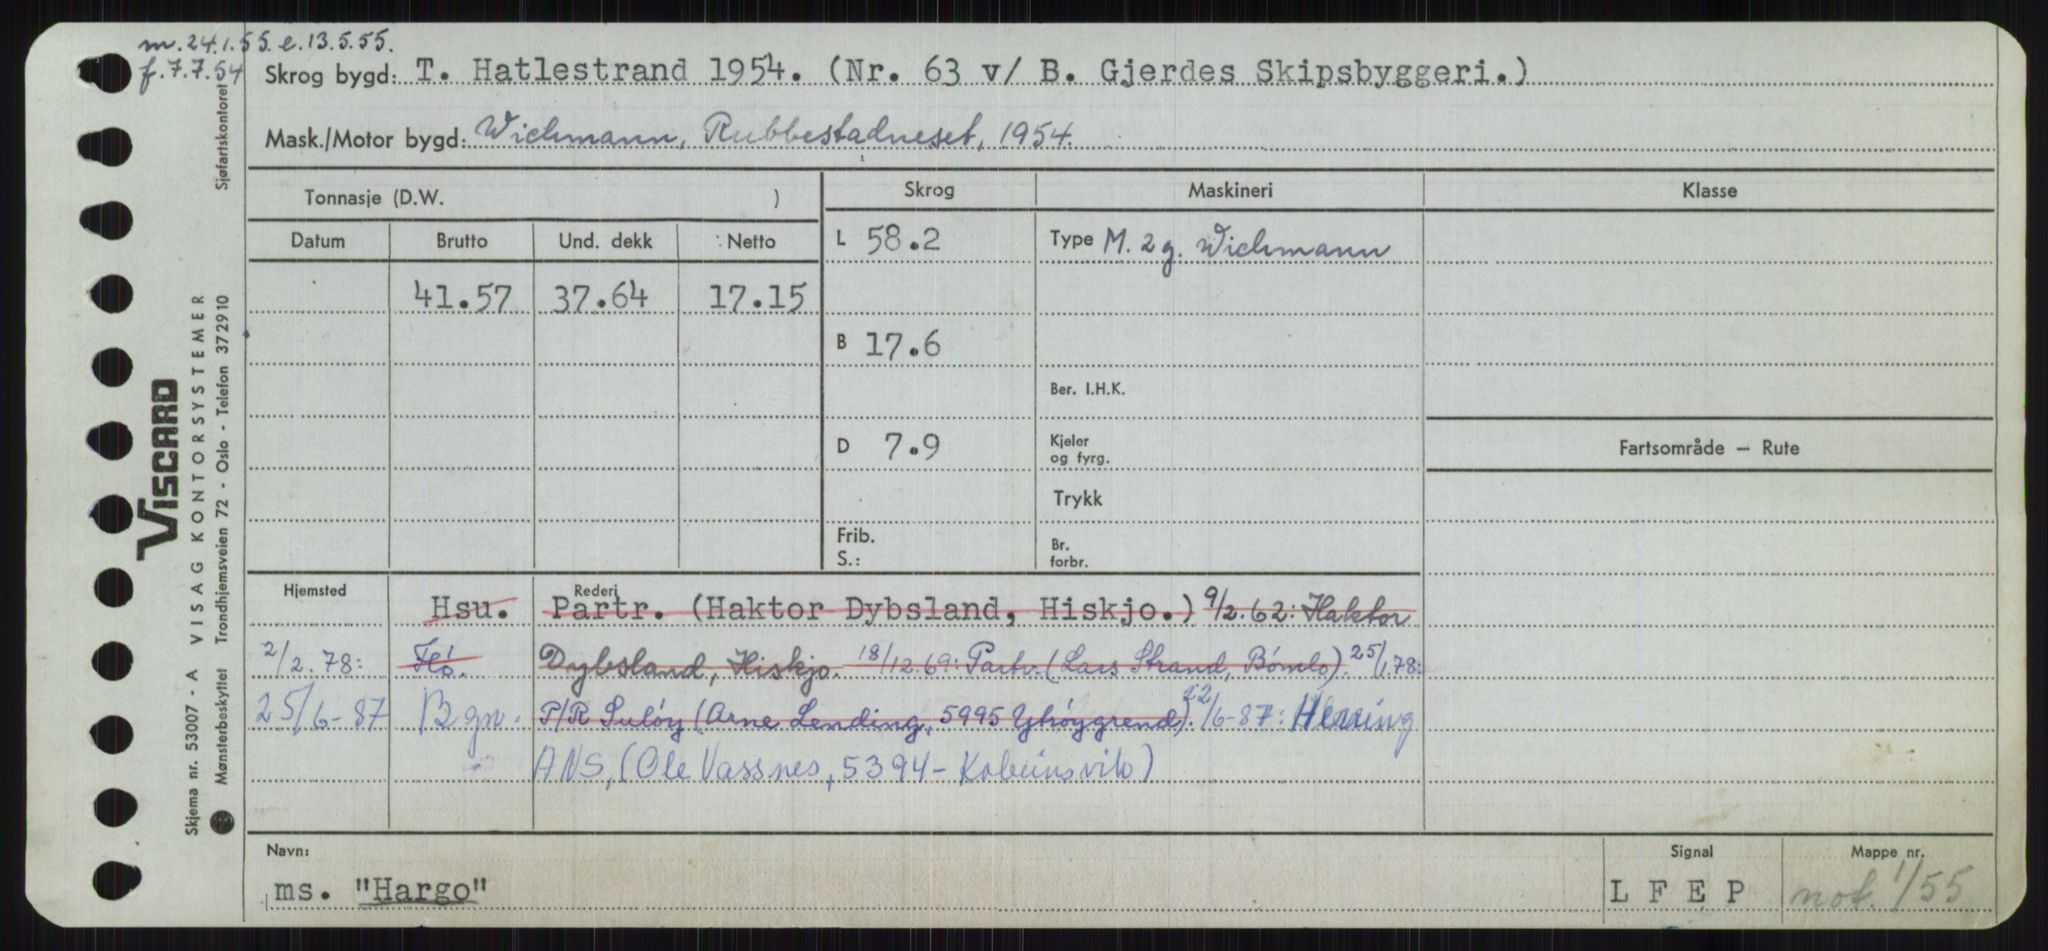 m. 24.1.55. e. 13.5.55.
f. 7.7.54
Skrog bygd: T. Hatlestrand 1954. (Nr. 63 v/ B. Gjerdes Skipsbyggeri.)
Mask./Motor bygd: Wichmann, Rubbestadneset, 1954.
Tonnasje (D.W. )
Skrog
Maskineri
Klasse
Datum Brutto Und. dekk Netto
L 58.2
Type M. 2 g. Wichmann
41.57 37.64 17.15
B 17.6
Ber. I.H.K.
D 7.9
Kjeler
og fyrg.
Fartsområde — Rute
Trykk
Frib.
S.:
Br.
forbr.
Hjemsted
Rederi
Hsu. Partr. (Haktor Dybsland, Hiskjo.) 9/2.62: Haktor
2/2.78: Fló. Dybsland, Hiskjo. 18/12.69: Partr. (Lars Strand, Bömlo). 25/1.78:
25/6-87 Bgn. P/R Sulöy (Arne Lending, 5995 Ytröygrend). 22/6-87: Herring
ANS, (Ole Vassnes, 5394 - Kolbeinsvik)
Navn:
ms. "Hargo"
Signal
L F E P
Mappe nr.
not. 1/55
Sjøfartskontoret
VISCARD
VISAG KONTORSYSTEMER
Trondhjemsveien 72 - Oslo - Telefon 37 29 10
Skjema nr. 53007 - A
Mønsterbeskyttet